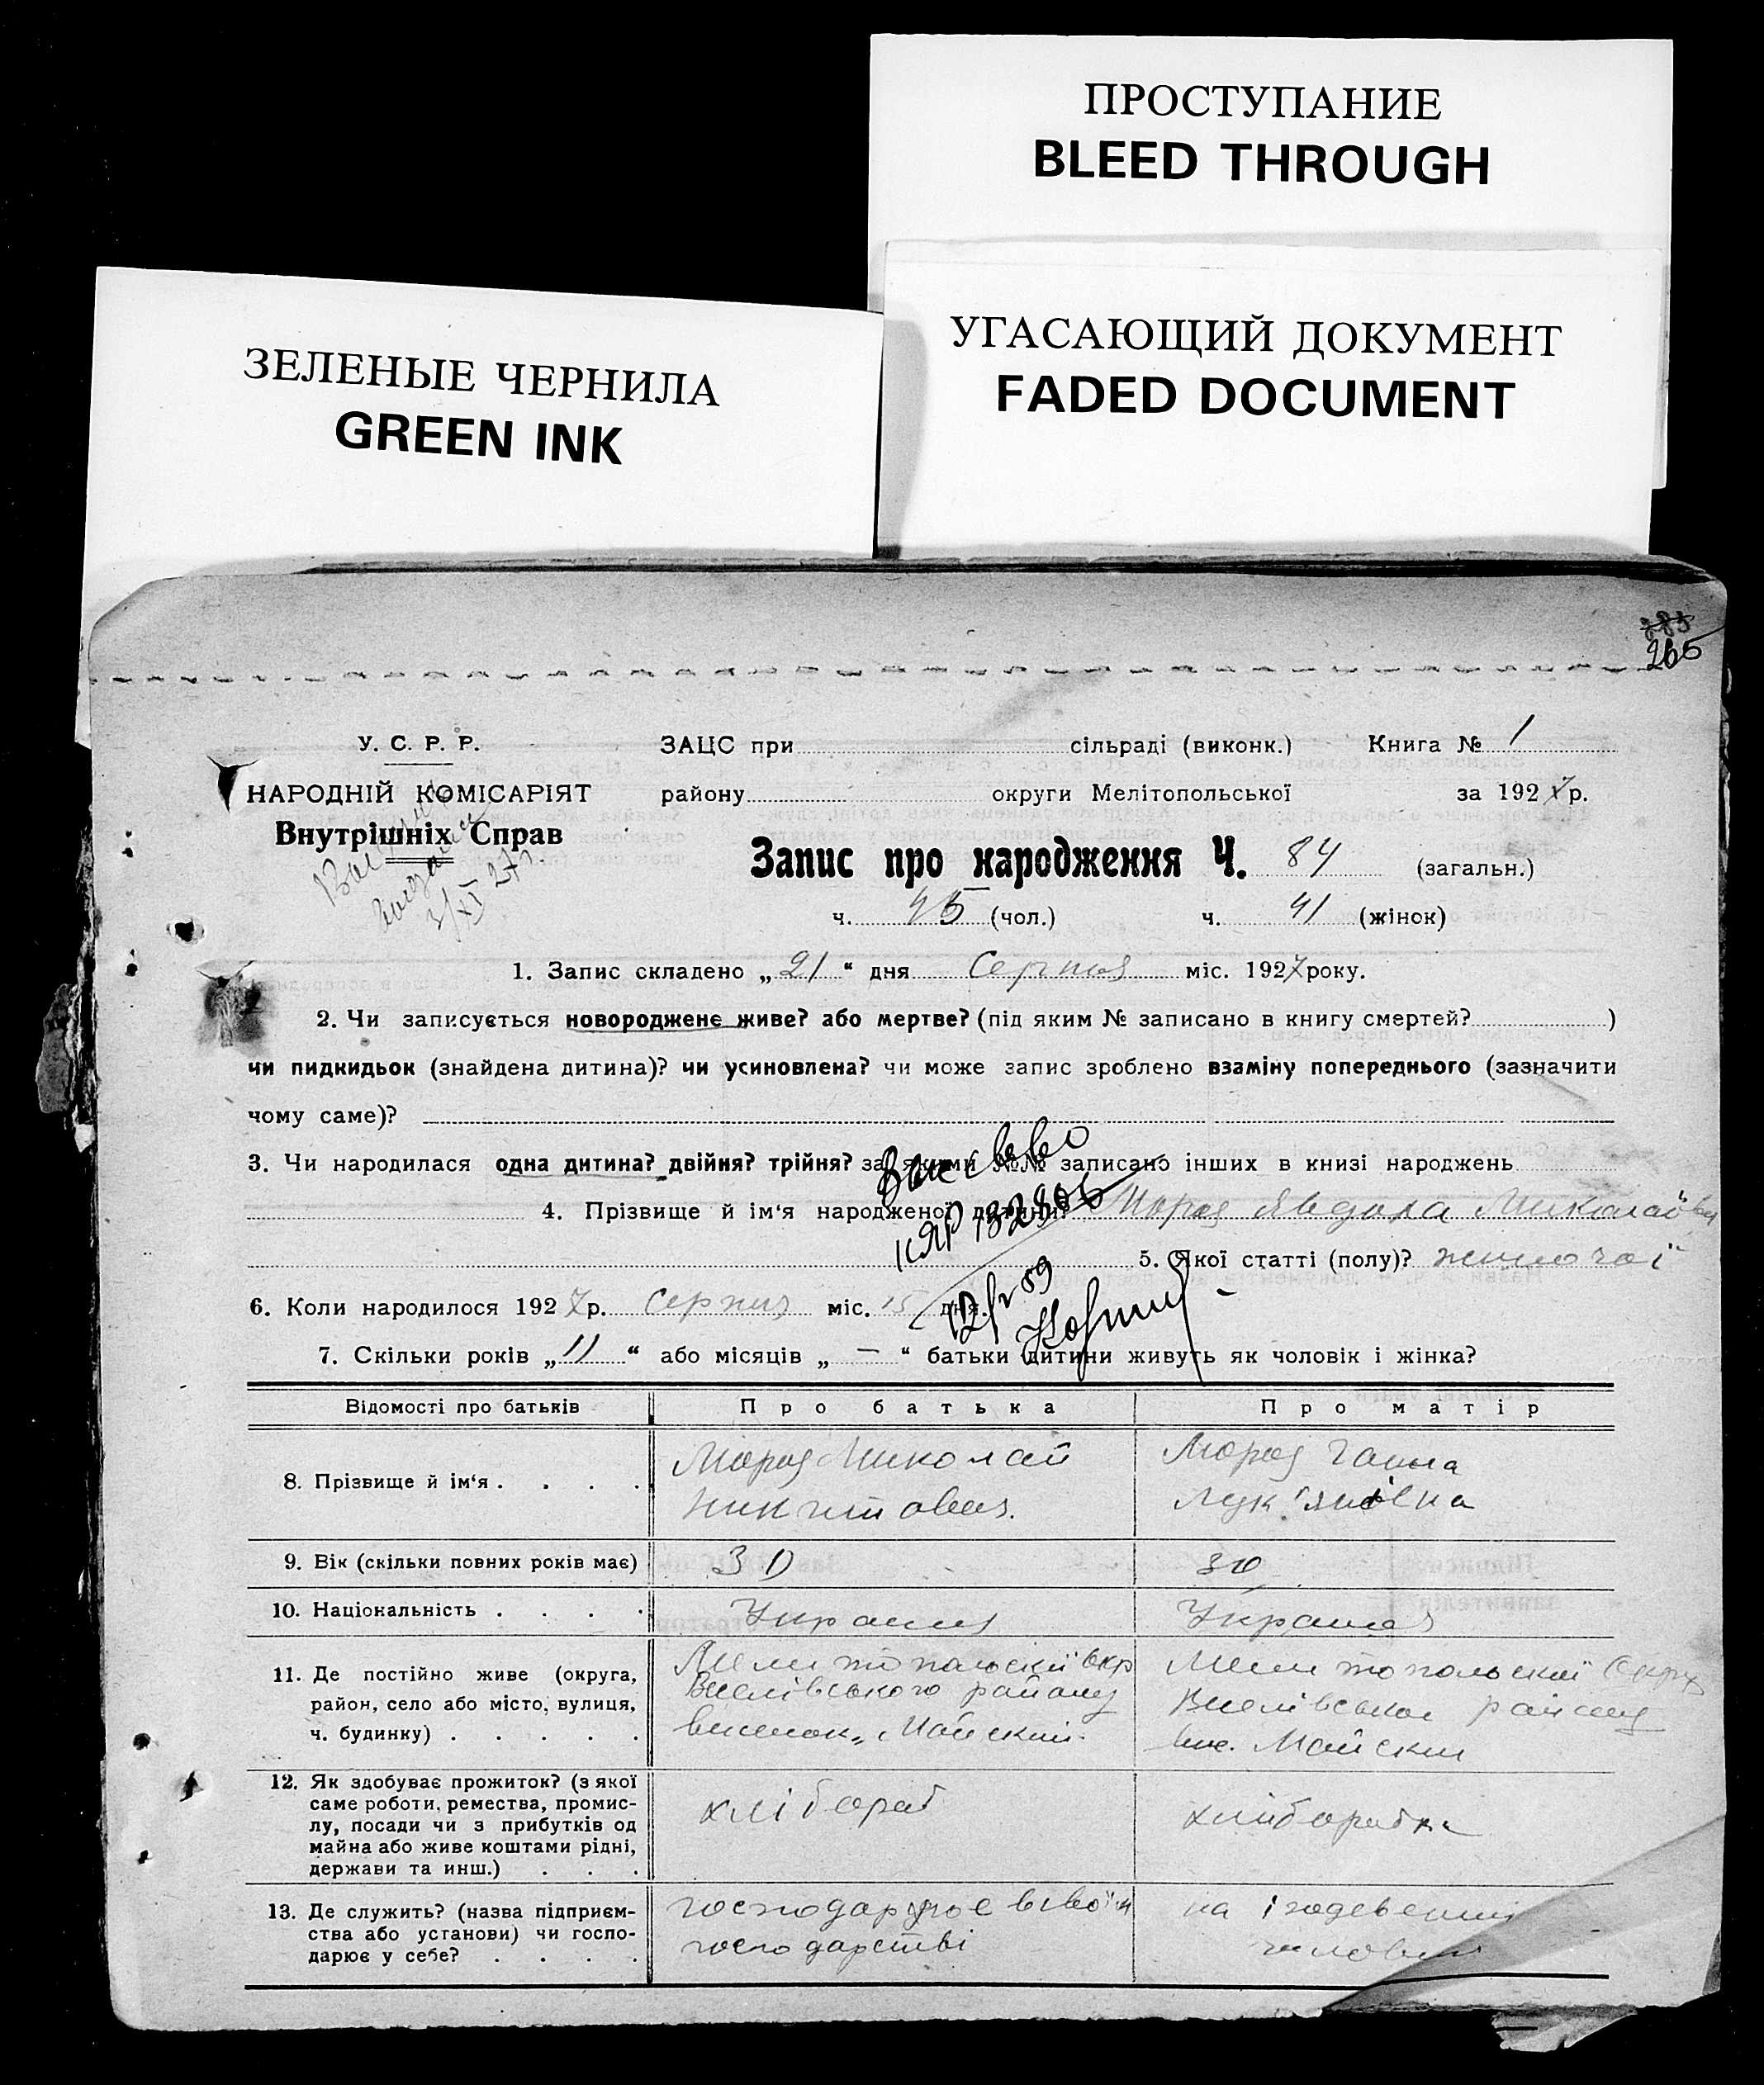 ПРОСТУПАНИЕ
BLEED THROUGH
УГАСАЮЩИЙ ДОКУМЕНТ
FADED DOCUMENT
ЗЕЛЕНЫЕ ЧЕРНИЛА
GREEN INK
265
У. С. Р. Р.
НАРОДНІЙ КОМІСАРІЯТ
Внутрішніх Справ
3/XI 27 г.
ЗАЦС при сільраді (виконк.) Книга № 1
району округи Мелітопольської за 1927 р.
Запис про народження Ч. 84 (загальн.)
ч. (чол.) ч. 41 (жінок)
1. Запис складено „21“ дня Серпня міс. 1927 року.
2. Чи записується новороджене живе? або мертве? (під яким № записано в книгу смертей? )
чи пидкидьок (знайдена дитина)? чи усиновлена? чи може запис зроблено взаміну попереднього (зазначити
чому саме)?
3. Чи народилася одна дитина? двійня? трійня? за якими №№ записано інших в книзі народжень
4. Прізвище й ім‘я народженої дитини? Мороз Явдоха Миколаївна
5. Якої статті (полу)? жиночої
6. Коли народилося 1927 р. Серпня міс. 15 дня.
7. Скільки років „11“ або місяців „—“ батьки дитини живуть як чоловік і жінка?
Відомості про батьків Про батька Про матір
8. Прізвище й ім‘я . . . . Мороз Николай Мороз Ганна
Лук'янівна
9. Вік (скільки повних років має) 30 30
10. Національність . . . .
11. Де постійно живе (округа, Мелитопольскиї Окр Мелитопольскиї Окр
район, село або місто, вулиця, району району
ч. будинку) . . . . . Майский Майский
12. Як здобуває прожиток? (з якої
саме роботи, ремества, промис- хлібороб хлиборобка
лу, посади чи з прибутків од
майна або живе коштами рідні,
держави та инш.) . . .
13. Де служить? (назва підприєм- господарює в своїм на
ства або установи) чи госпо- господарстві
дарює у себе? . . . .